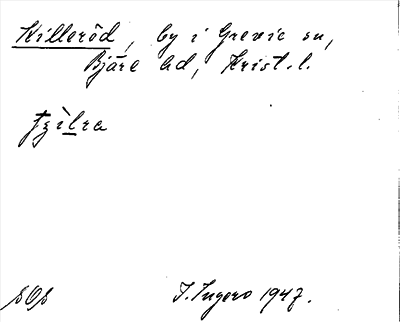 Killeröd, by i Grevie sn,
Bjäre hd, Krist. l.
SOS I. Ingers 1947.